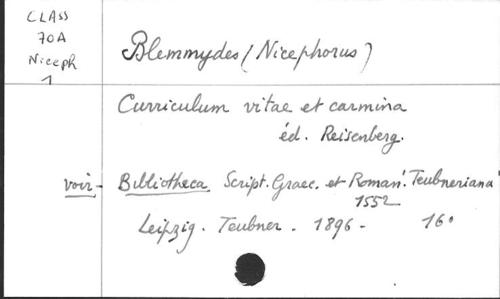 CLASS
70A
Niceph
1
Blemmydes (Nicephorus)
Curriculum vitae et carmina
éd. Reisenberg.
voir - Bibliotheca Script. Graec. et Roman. Teubneriana
1552
Leipzig. Teubner. 1896 - 16°